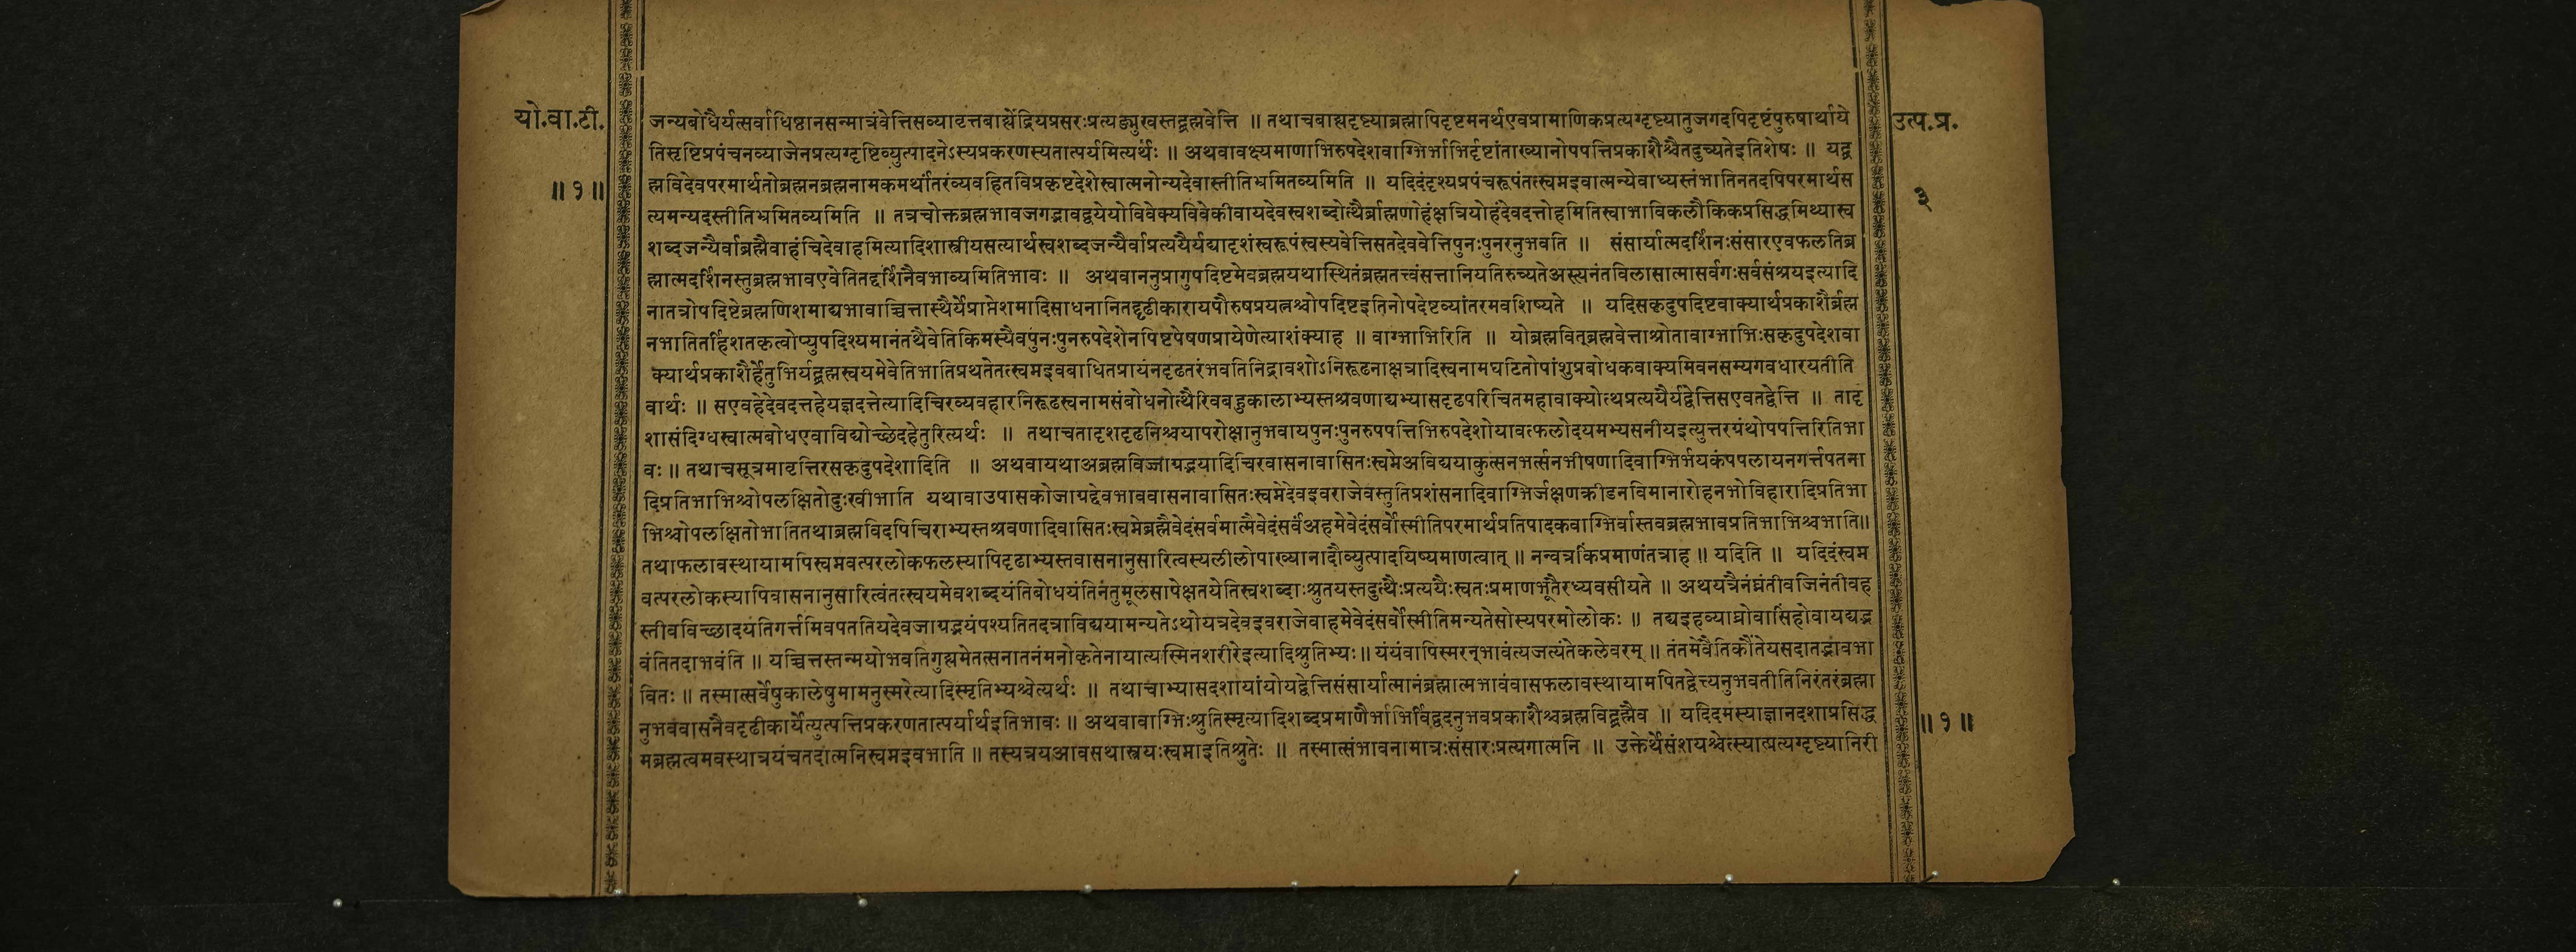 यो.वा.टी.
॥ १ ॥
उत्प.प्र.
३
जन्यबोधैर्यत्सर्वाधिष्ठानसन्मात्रंवेत्तिसव्यावृत्तबाह्येंद्रियप्रसरःप्रत्यङ्मुखस्तद्ब्रह्मवेत्ति ॥ तथाचबाह्यदृष्ट्याब्रह्मापिदृष्टमनर्थएवप्रामाणिकप्रत्यग्दृष्ट्यातुजगदपिदृष्टंपुरुषार्थाये
तिसृष्टिप्रपंचनव्याजेनप्रत्यग्दृष्टिव्युत्पादनेऽस्यप्रकरणस्यतात्पर्यमित्यर्थः ॥ अथवावक्ष्यमाणाभिरुपदेशवाग्भिर्भाभिर्दृष्टांताख्यानोपपत्तिप्रकाशैश्चैतदुच्यतेइतिशेषः ॥ यद्ब्र
ह्मविदेवपरमार्थतोब्रह्मनब्रह्मनामकमर्थांतरंव्यवहितविप्रकृष्टदेशेस्वात्मनोन्यदेवास्तीतिभ्रमितव्यमिति ॥ यदिदंदृश्यप्रपंचरूपंतत्स्वप्नइवात्मन्येवाध्यस्तंभातिनतदपिपरमार्थस
त्यमन्यदस्तीतिभ्रमितव्यमिति ॥ तत्रचोक्तब्रह्मभावजगद्भावद्वयेयोविवेक्यविवेकीवायदेवस्वशब्दोत्थैर्ब्राह्मणोहंक्षत्रियोहंदेवदत्तोहमितिस्वाभाविकलौकिकप्रसिद्धमिथ्यास्व
शब्दजन्यैर्वाब्रह्मैवाहंचिदेवाहमित्यादिशास्त्रीयसत्यार्थस्वशब्दजन्यैर्वाप्रत्ययैर्यद्यादृशंस्वरूपंस्वस्यवेत्तिसतदेववेत्तिपुनःपुनरनुभवति ॥ संसार्यात्मदर्शिनःसंसारएवफलतिब्र
ह्मात्मदर्शिनस्तुब्रह्मभावएवेतितद्दर्शिनैवभाव्यमितिभावः ॥ अथवाननुप्रागुपदिष्टमेवब्रह्मयथास्थितंब्रह्मतत्त्वंसत्तानियतिरुच्यतेअस्त्यनंतविलासात्मासर्वगःसर्वसंश्रयइत्यादि
नातत्रोपदिष्टेब्रह्मणिशमाद्यभावाच्चित्तास्थैर्येप्राप्तेशमादिसाधनानितद्दृढीकारायपौरुषप्रयत्नश्चोपदिष्टइतिनोपदेष्टव्यांतरमवशिष्यते ॥ यदिसकृदुपदिष्टवाक्यार्थप्रकाशैर्ब्रह्म
नभातितर्हिशतकृत्वोप्युपदिश्यमानंतथैवेतिकिमस्यैवपुनःपुनरुपदेशेनपिष्टपेषणप्रायेणेत्याशंक्याह ॥ वाग्भाभिरिति ॥ योब्रह्मवित्‌ब्रह्मवेत्ताश्रोतावाग्भाभिःसकृदुपदेशवा
क्यार्थप्रकाशैर्हेतुभिर्यद्ब्रह्मस्वयमेवेतिभातिप्रथतेतत्स्वप्नइवबाधितप्रायंनदृढतरंभवतिनिद्रावशोऽनिरूढनाक्षत्रादिस्वनामघटितोपांशुप्रबोधकवाक्यमिवनसम्यगवधारयतीति
वार्थः ॥ सएवहेदेवदत्तहेयज्ञदत्तेत्यादिचिरव्यवहारनिरूढस्वनामसंबोधनोत्थैरिवबहुकालाभ्यस्तश्रवणाद्यभ्यासदृढपरिचितमहावाक्योत्थप्रत्ययैर्यद्वेत्तिसएवतद्वेत्ति ॥ तादृ
शासंदिग्धस्वात्मबोधएवाविद्योच्छेदहेतुरित्यर्थः ॥ तथाचतादृशदृढनिश्चयापरोक्षानुभवायपुनःपुनरुपपत्तिभिरुपदेशोयावत्फलोदयमभ्यसनीयइत्युत्तरग्रंथोपपत्तिरितिभा
वः ॥ तथाचसूत्रमावृत्तिरसकृदुपदेशादिति ॥ अथवायथाअब्रह्मविज्जाग्रद्भयादिचिरवासनावासितःस्वप्नेअविद्ययाकुत्सनभर्त्सनभीषणादिवाग्भिर्भयकंपपलायनगर्त्तपतना
दिप्रतिभाभिश्चोपलक्षितोदुःखीभाति यथावाउपासकोजाग्रद्देवभाववासनावासितःस्वप्नेदेवइवराजेवस्तुतिप्रशंसनादिवाग्भिर्जक्षणक्रीडनविमानारोहनभोविहारादिप्रतिभा
भिश्चोपलक्षितोभातितथाब्रह्मविदपिचिराभ्यस्तश्रवणादिवासितःस्वप्नेब्रह्मैवेदंसर्वमात्मैवेदंसर्वंअहमेवेदंसर्वोस्मीतिपरमार्थप्रतिपादकवाग्भिर्वास्तवब्रह्मभावप्रतिभाभिश्चभाति॥
तथाफलावस्थायामपिस्वप्नवत्परलोकफलस्यापिदृढाभ्यस्तवासनानुसारित्वस्यलीलोपाख्यानादौव्युत्पादयिष्यमाणत्वात् ॥ नन्वत्रकिंप्रमाणंतत्राह ॥ यदिति ॥ यदिदंस्वप्न
वत्परलोकस्यापिवासनानुसारित्वंतत्स्वयमेवशब्दयंतिबोधयंतिनंतुमूलसापेक्षतयेतिस्वशब्दाःश्रुतयस्तदुत्थैःप्रत्ययैःस्वतःप्रमाणभूतैरध्यवसीयते ॥ अथयत्रैनंघ्नंतीवजिनंतीवह
स्तीवविच्छादयंतिगर्त्तमिवपततियदेवजाग्रद्भयंपश्यतितदत्राविद्ययामन्यतेऽथोयत्रदेवइवराजेवाहमेवेदंसर्वोस्मीतिमन्यतेसोस्यपरमोलोकः ॥ तद्यइहव्याघ्रोवासिंहोवायद्यद्भ
वंतितदाभवंति ॥ यच्चित्तस्तन्मयोभवतिगुह्यमेतत्सनातनंमनोकृतेनायात्यस्मिनशरीरेइत्यादिश्रुतिभ्यः॥ यंयंवापिस्मरन्‌भावंत्यजत्यंतेकलेवरम् ॥ तंतमेवैतिकौंतेयसदातद्भावभा
वितः ॥ तस्मात्सर्वेषुकालेषुमामनुस्मरेत्यादिस्मृतिभ्यश्चेत्यर्थः ॥ तथाचाभ्यासदशायांयोयद्वेत्तिसंसार्यात्मानंब्रह्मात्मभावंवासफलावस्थायामपितद्वेत्त्यनुभवतीतिनिरंतरंब्रह्मा
नुभववासनैवदृढीकार्येत्युत्पत्तिप्रकरणतात्पर्यार्थइतिभावः ॥ अथवावाग्भिःश्रुतिस्मृत्यादिशब्दप्रमाणैर्भाभिर्विद्वदनुभवप्रकाशैश्चब्रह्मविद्ब्रह्मैव ॥ यदिदमस्याज्ञानदशाप्रसिद्ध
मब्रह्मत्वमवस्थात्रयंचतदात्मनिस्वप्नइवभाति ॥ तस्यत्रयआवसथास्त्रयःस्वप्नाइतिश्रुतेः ॥ तस्मात्संभावनामात्रःसंसारःप्रत्यगात्मनि ॥ उक्तेर्थेसंशयश्चेत्स्यात्प्रत्यग्दृष्ट्यानिरी
॥ १ ॥